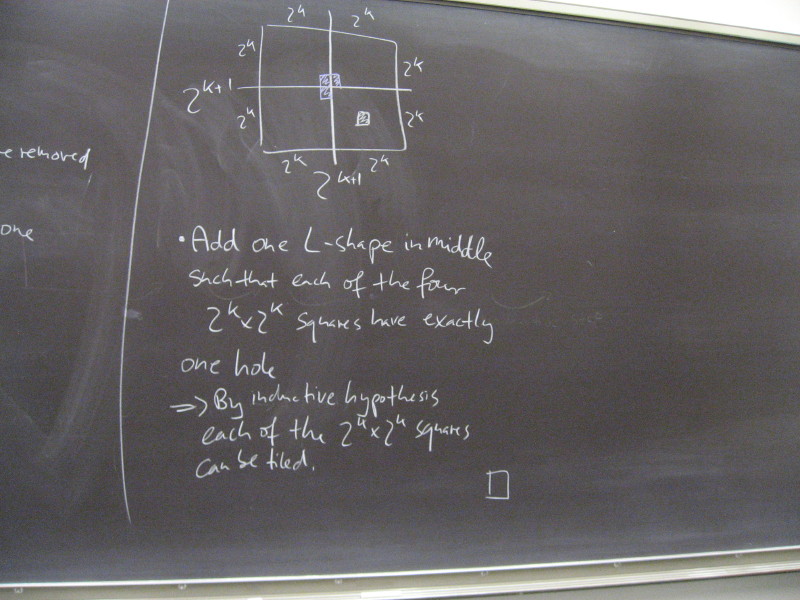 2^k 2^k
2^k 2^k
2^k+1
2^k 2^k
2^k 2^k
2^k+1
e removed
one
• Add one L-shape in middle
such that each of the four
2^k × 2^k squares have exactly
one hole
=> By inductive hypothesis
each of the 2^k × 2^k squares
can be tiled.